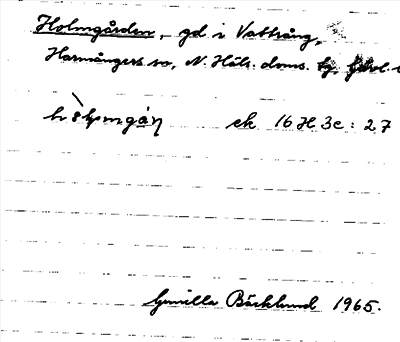 Holmgården, gd i Vattrång,
Harmångers sn, N. Häls. doms.
ek 16 H 3c : 27
Gunilla Bäcklund 1965.